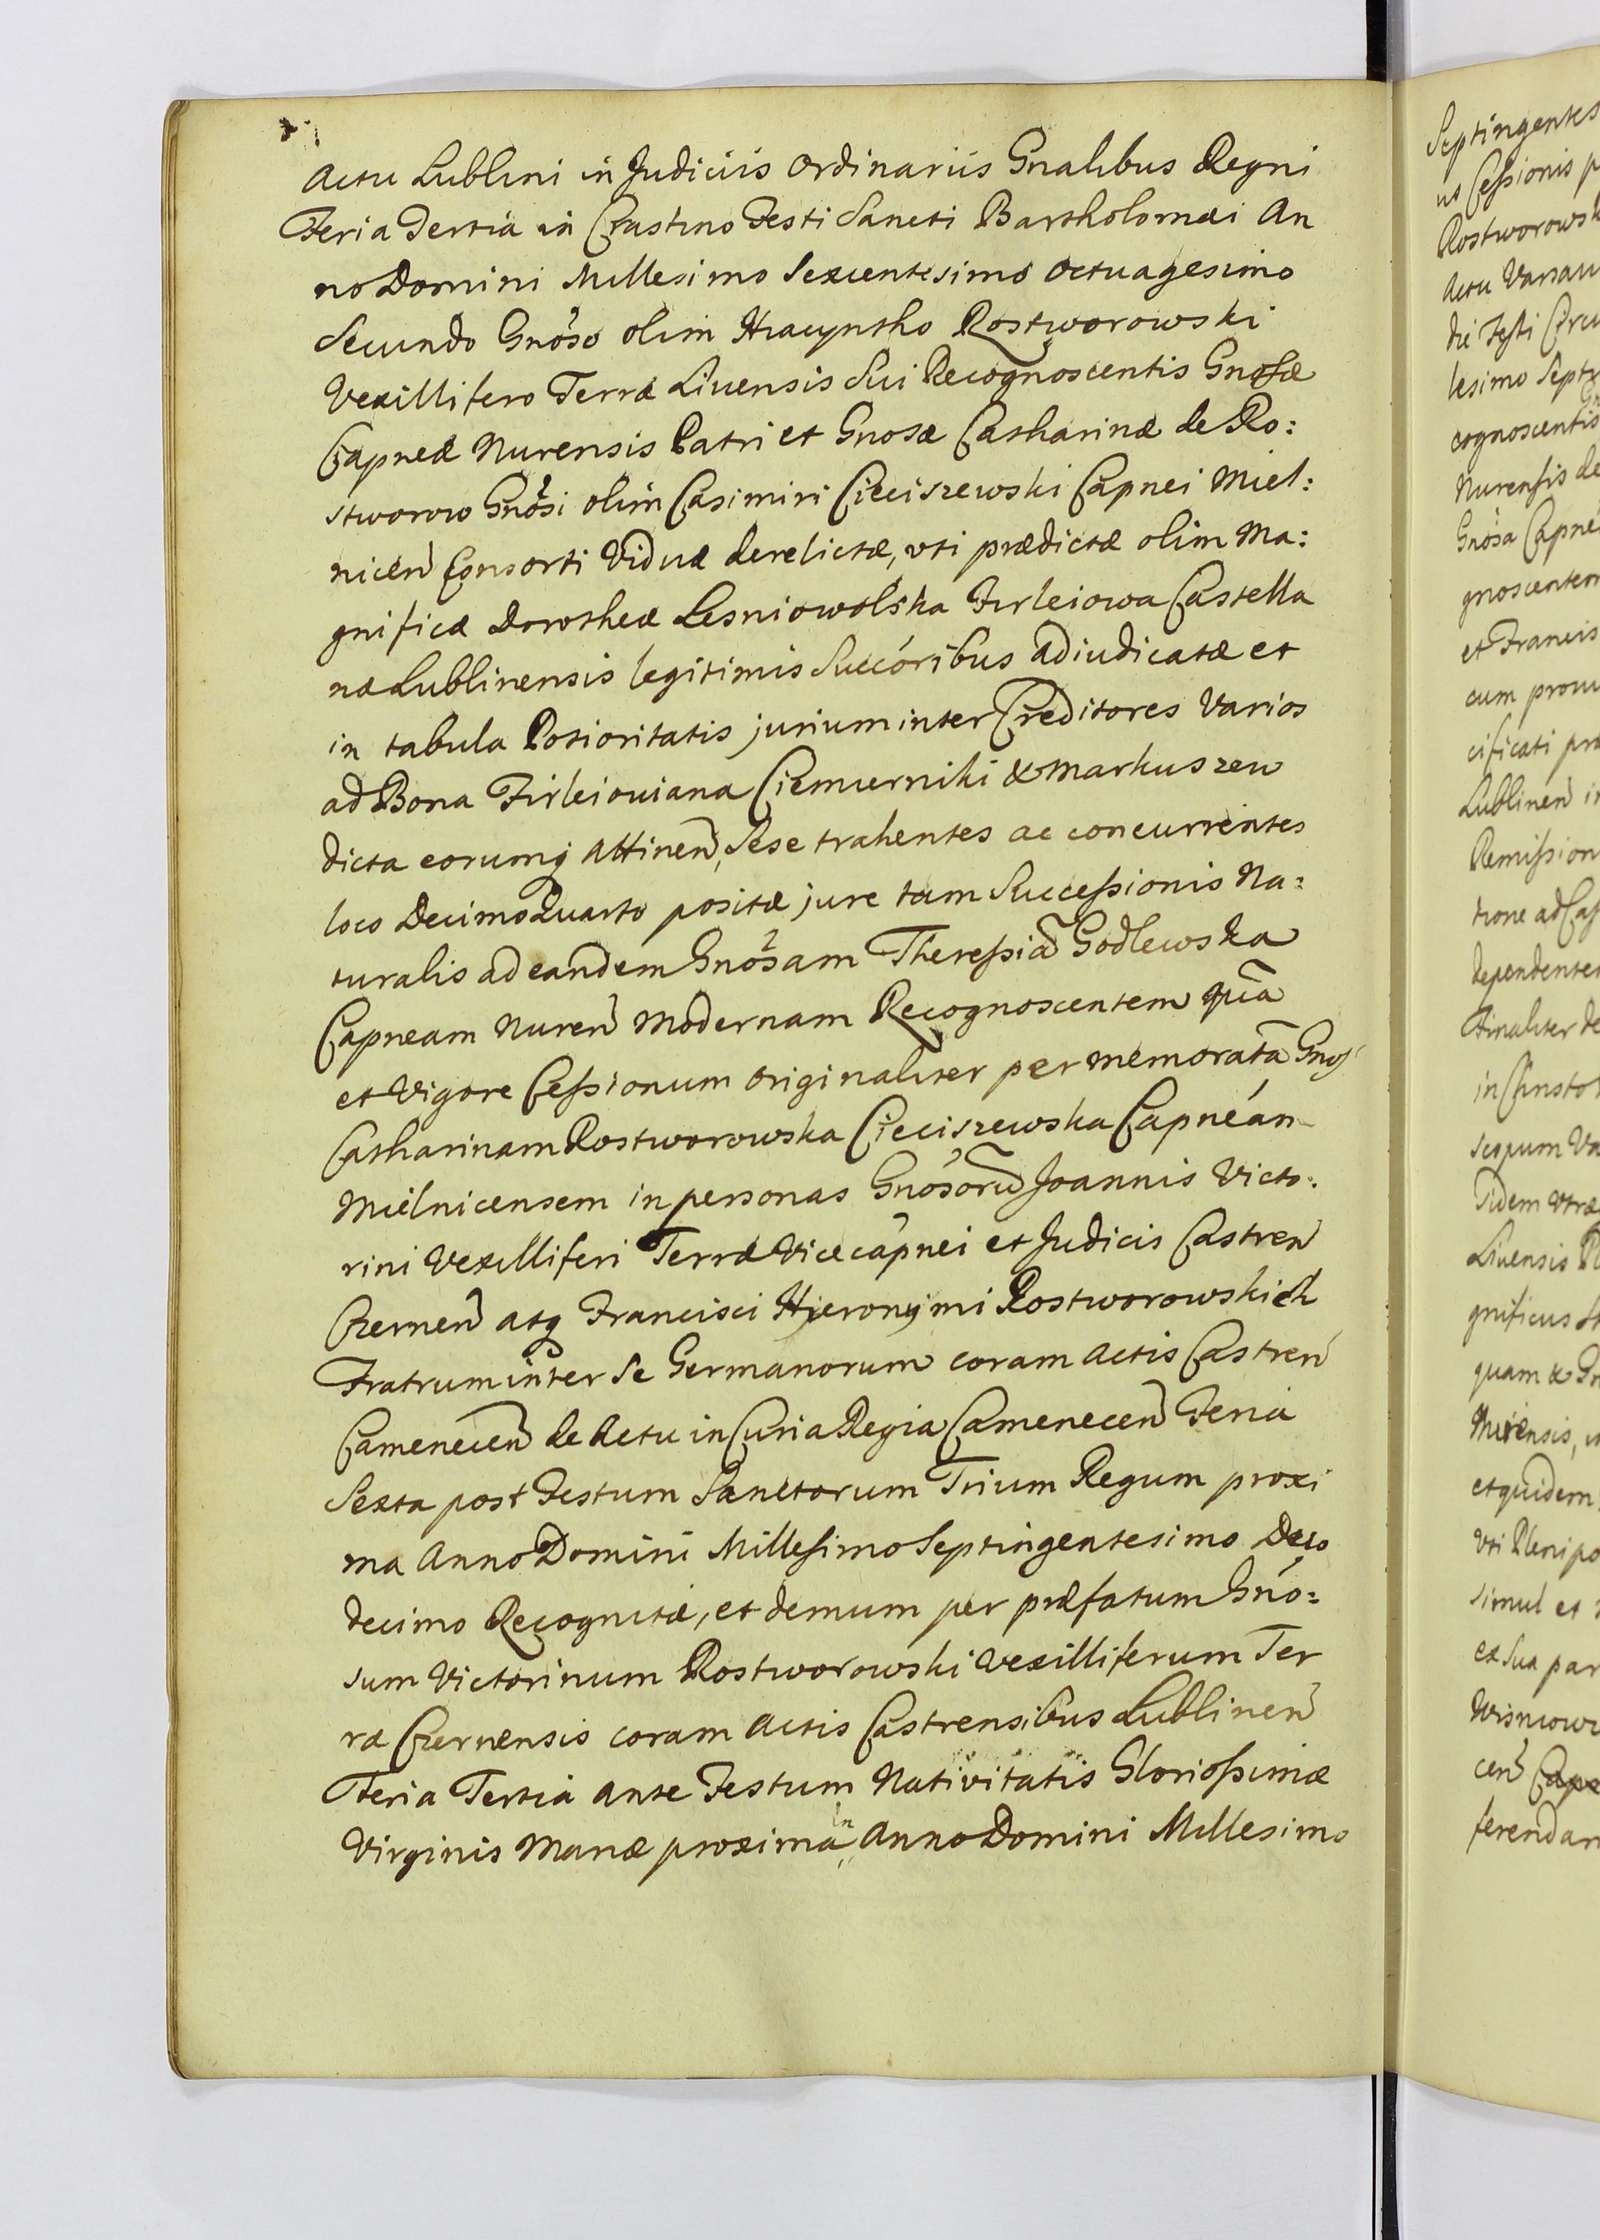 Actu Lublini in Judiciis Ordinariis Gnalibus Regni
Feria Tertia in Crastino Festi Sancti Bartholomæi An
no Domini Millesimo Sexcentesimo Octuagesimo
Secundo Gnoso olim Hiacyntho Rostworowski
Vexillifero Terræ Livensis Sui Recognoscentis Gnosæ
Capneæ Nurensis Patri et Gnosæ Catharinæ de Ro:
stworow Gnosi olim Casimiri Cieciszewski Capnei Miel:
nicen Consorti Viduæ derelictæ, uti prædictæ olim Ma:
gnificæ Dorotheæ Lesniowolska Firleiowa Castella
næ Lublinensis legitimis Succoribus adiudicatæ et
in tabula Potioritatis jurium inter Creditores Varios
ad Bona Firleioviana Ciemierniki & Markuszew
dicta eorumq Attinen, Sese trahentes ac concurrentes
loco Decimo Quarto positæ jure tam Successionis Na:
turalis ad eandem Gnosam Theressia Godlewska
Capneam Nuren Modernam Recognoscentem qua
et Vigore Cessionum originaliter per memorata Gnos
Catharinam Rostworowska Cieciszewska Capneam
Mielnicensem in personas Gnosoru Joannis Victo:
rini Vexilliferi Terræ Vicecapnei et Judicis Castren
Czernen atq Francisci Hieronymi Rostworowskich
Fratrum inter Se Germanorum coram Actis Castren
Camenecen de Actu in Curia Regia Camenecen Feria
Sexta post Festum Sanctorum Trium Regum proxi
ma Anno Domini Millesimo Septingentesimo Deco
decimo Recognitæ, et demum per præfatum Gno:
sum Victorinum Rostworowski Vexilliferum Ter
ræ Czernensis coram Actis Castrensibus Lublinen
Feria Tertia ante Festum Nativitatis Gloriosissimæ
Virginis Mariæ proxima in Anno Domini Millesimo
Septingentes
Rostworowsk
lesimo Sept
cognoscentis
Nurensis de
Gnosa Capne
gnoscentem
et Francis
cificati præ
Lublinen in
Remission
dependenter
Livensis
gnificus
et quidem
simul et
ex Sua par
ferendam